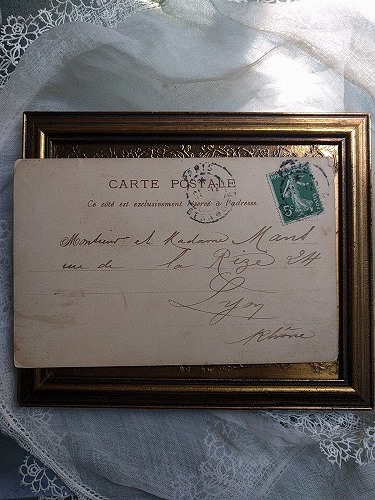 CARTE POSTALE
Ce côté est exclusivement réservé à l'adresse.
5
Monsieur et Madame
rue de la Rize 24
Lyon
Rhône